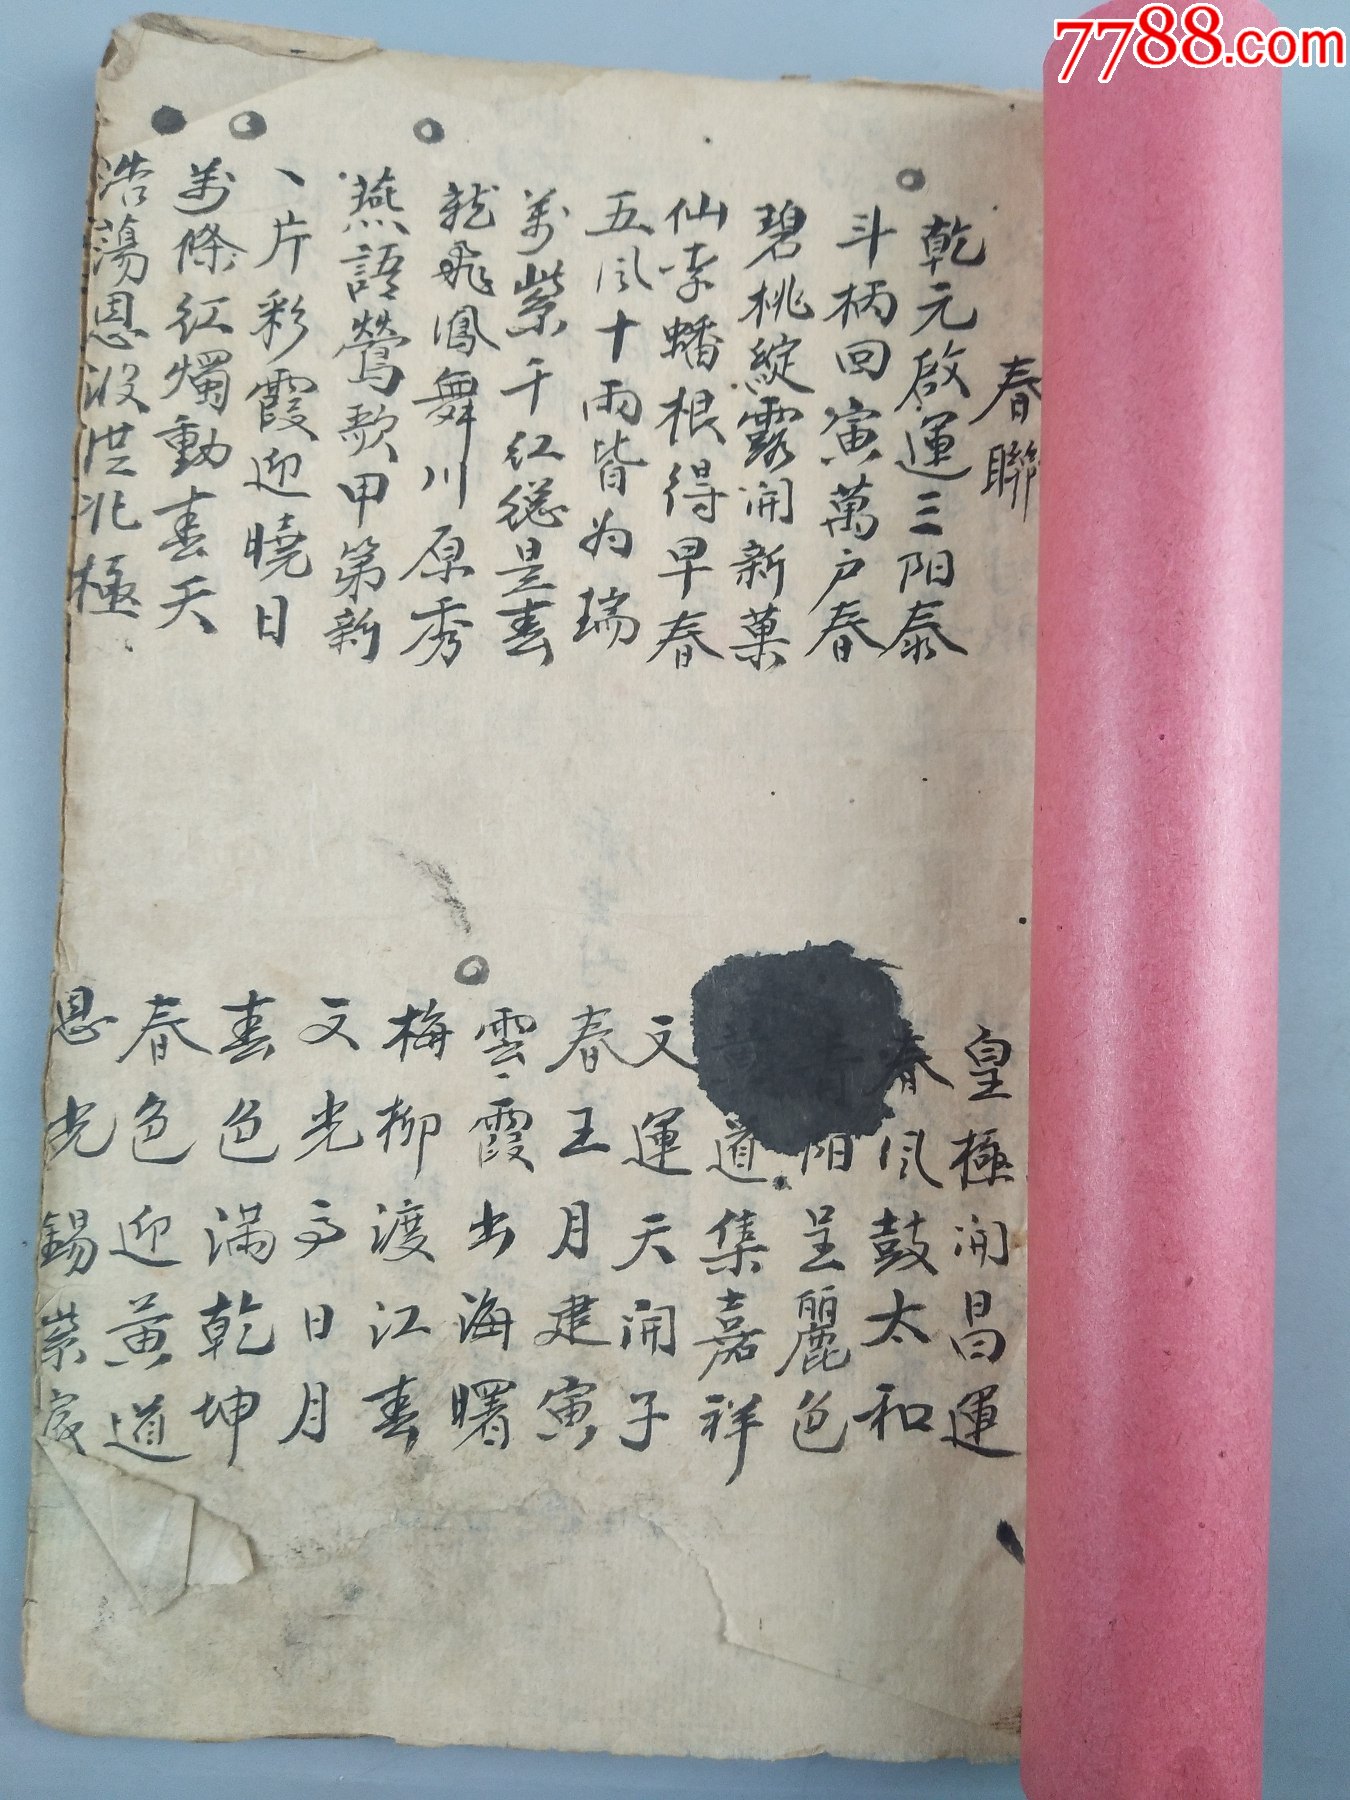 7788.com
春聯
乾元啟運三阳泰
斗柄回寅萬户春
碧桃綻露開新菓
仙李蟠根得早春
五风十雨皆为瑞
萬紫千红總是春
龙飛鳳舞川原秀
燕語鶯歌甲第新
一片彩霞迎曉日
萬條红燭動春天
浩蕩恩波洪兆極
皇極開昌運
春风鼓太和
阳呈麗色
道集嘉祥
文運天開子
春王月建寅
雲霞出海曙
梅柳渡江春
文光日月
春色满乾坤
春色迎黄道
恩光錫紫宸